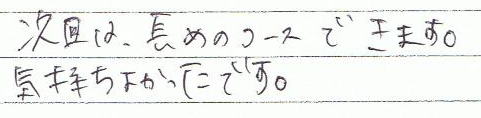 次回は、長めのコースできます。
気持ちよかったです。